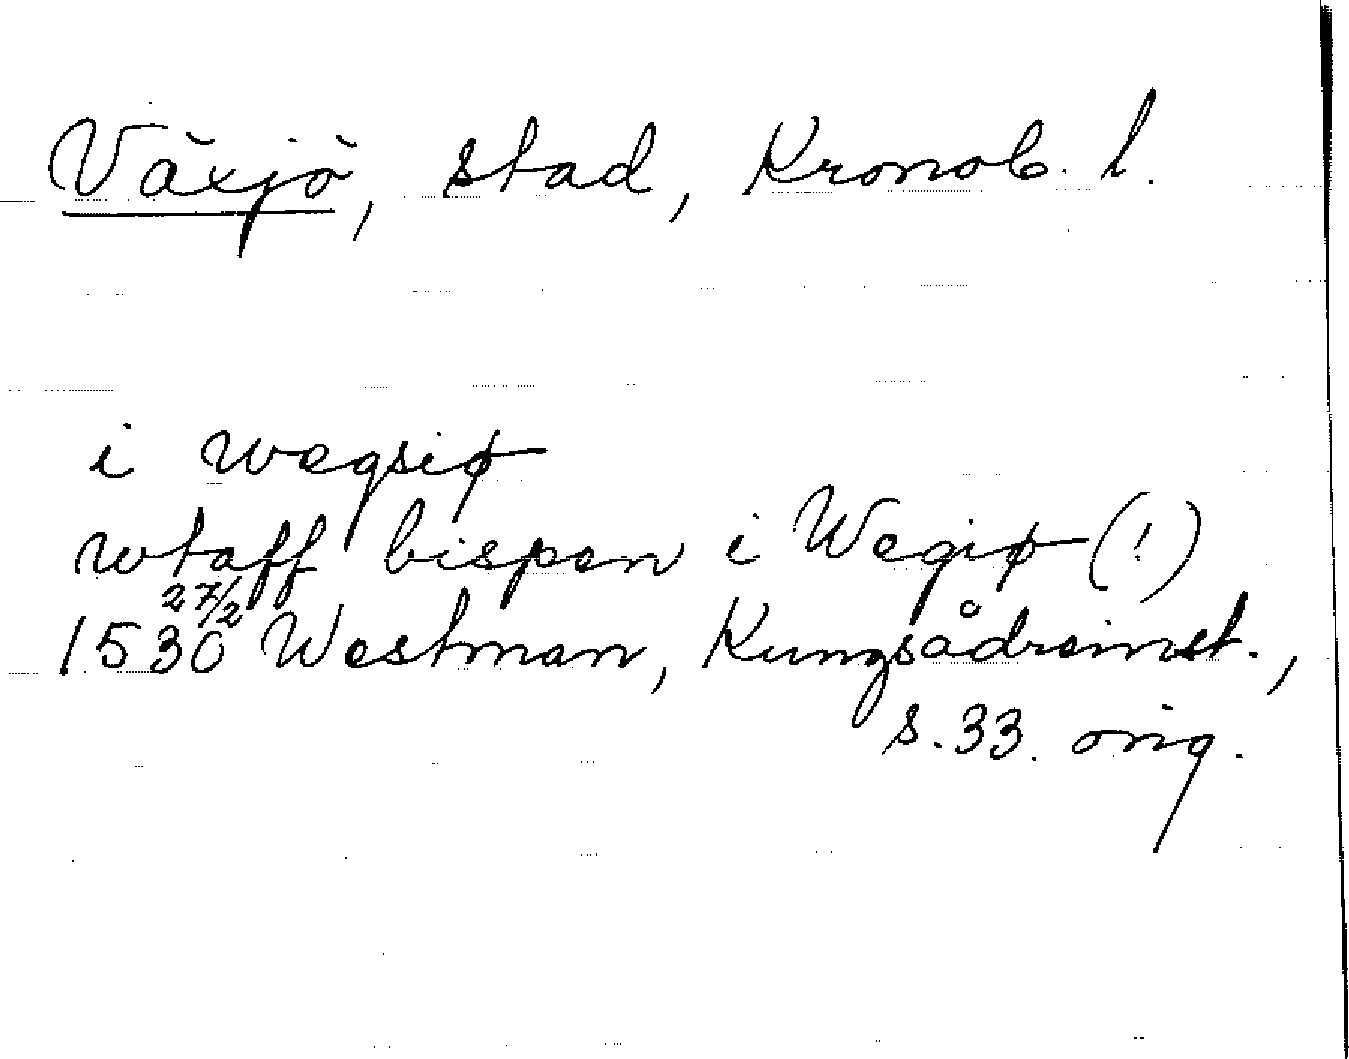 Växjö, stad, Kronob. l.
i wegsiø
wtaff bispen i Wegiø (!)
27/2
1530 Westman, Kungsådreinst.,
s. 33. orig.